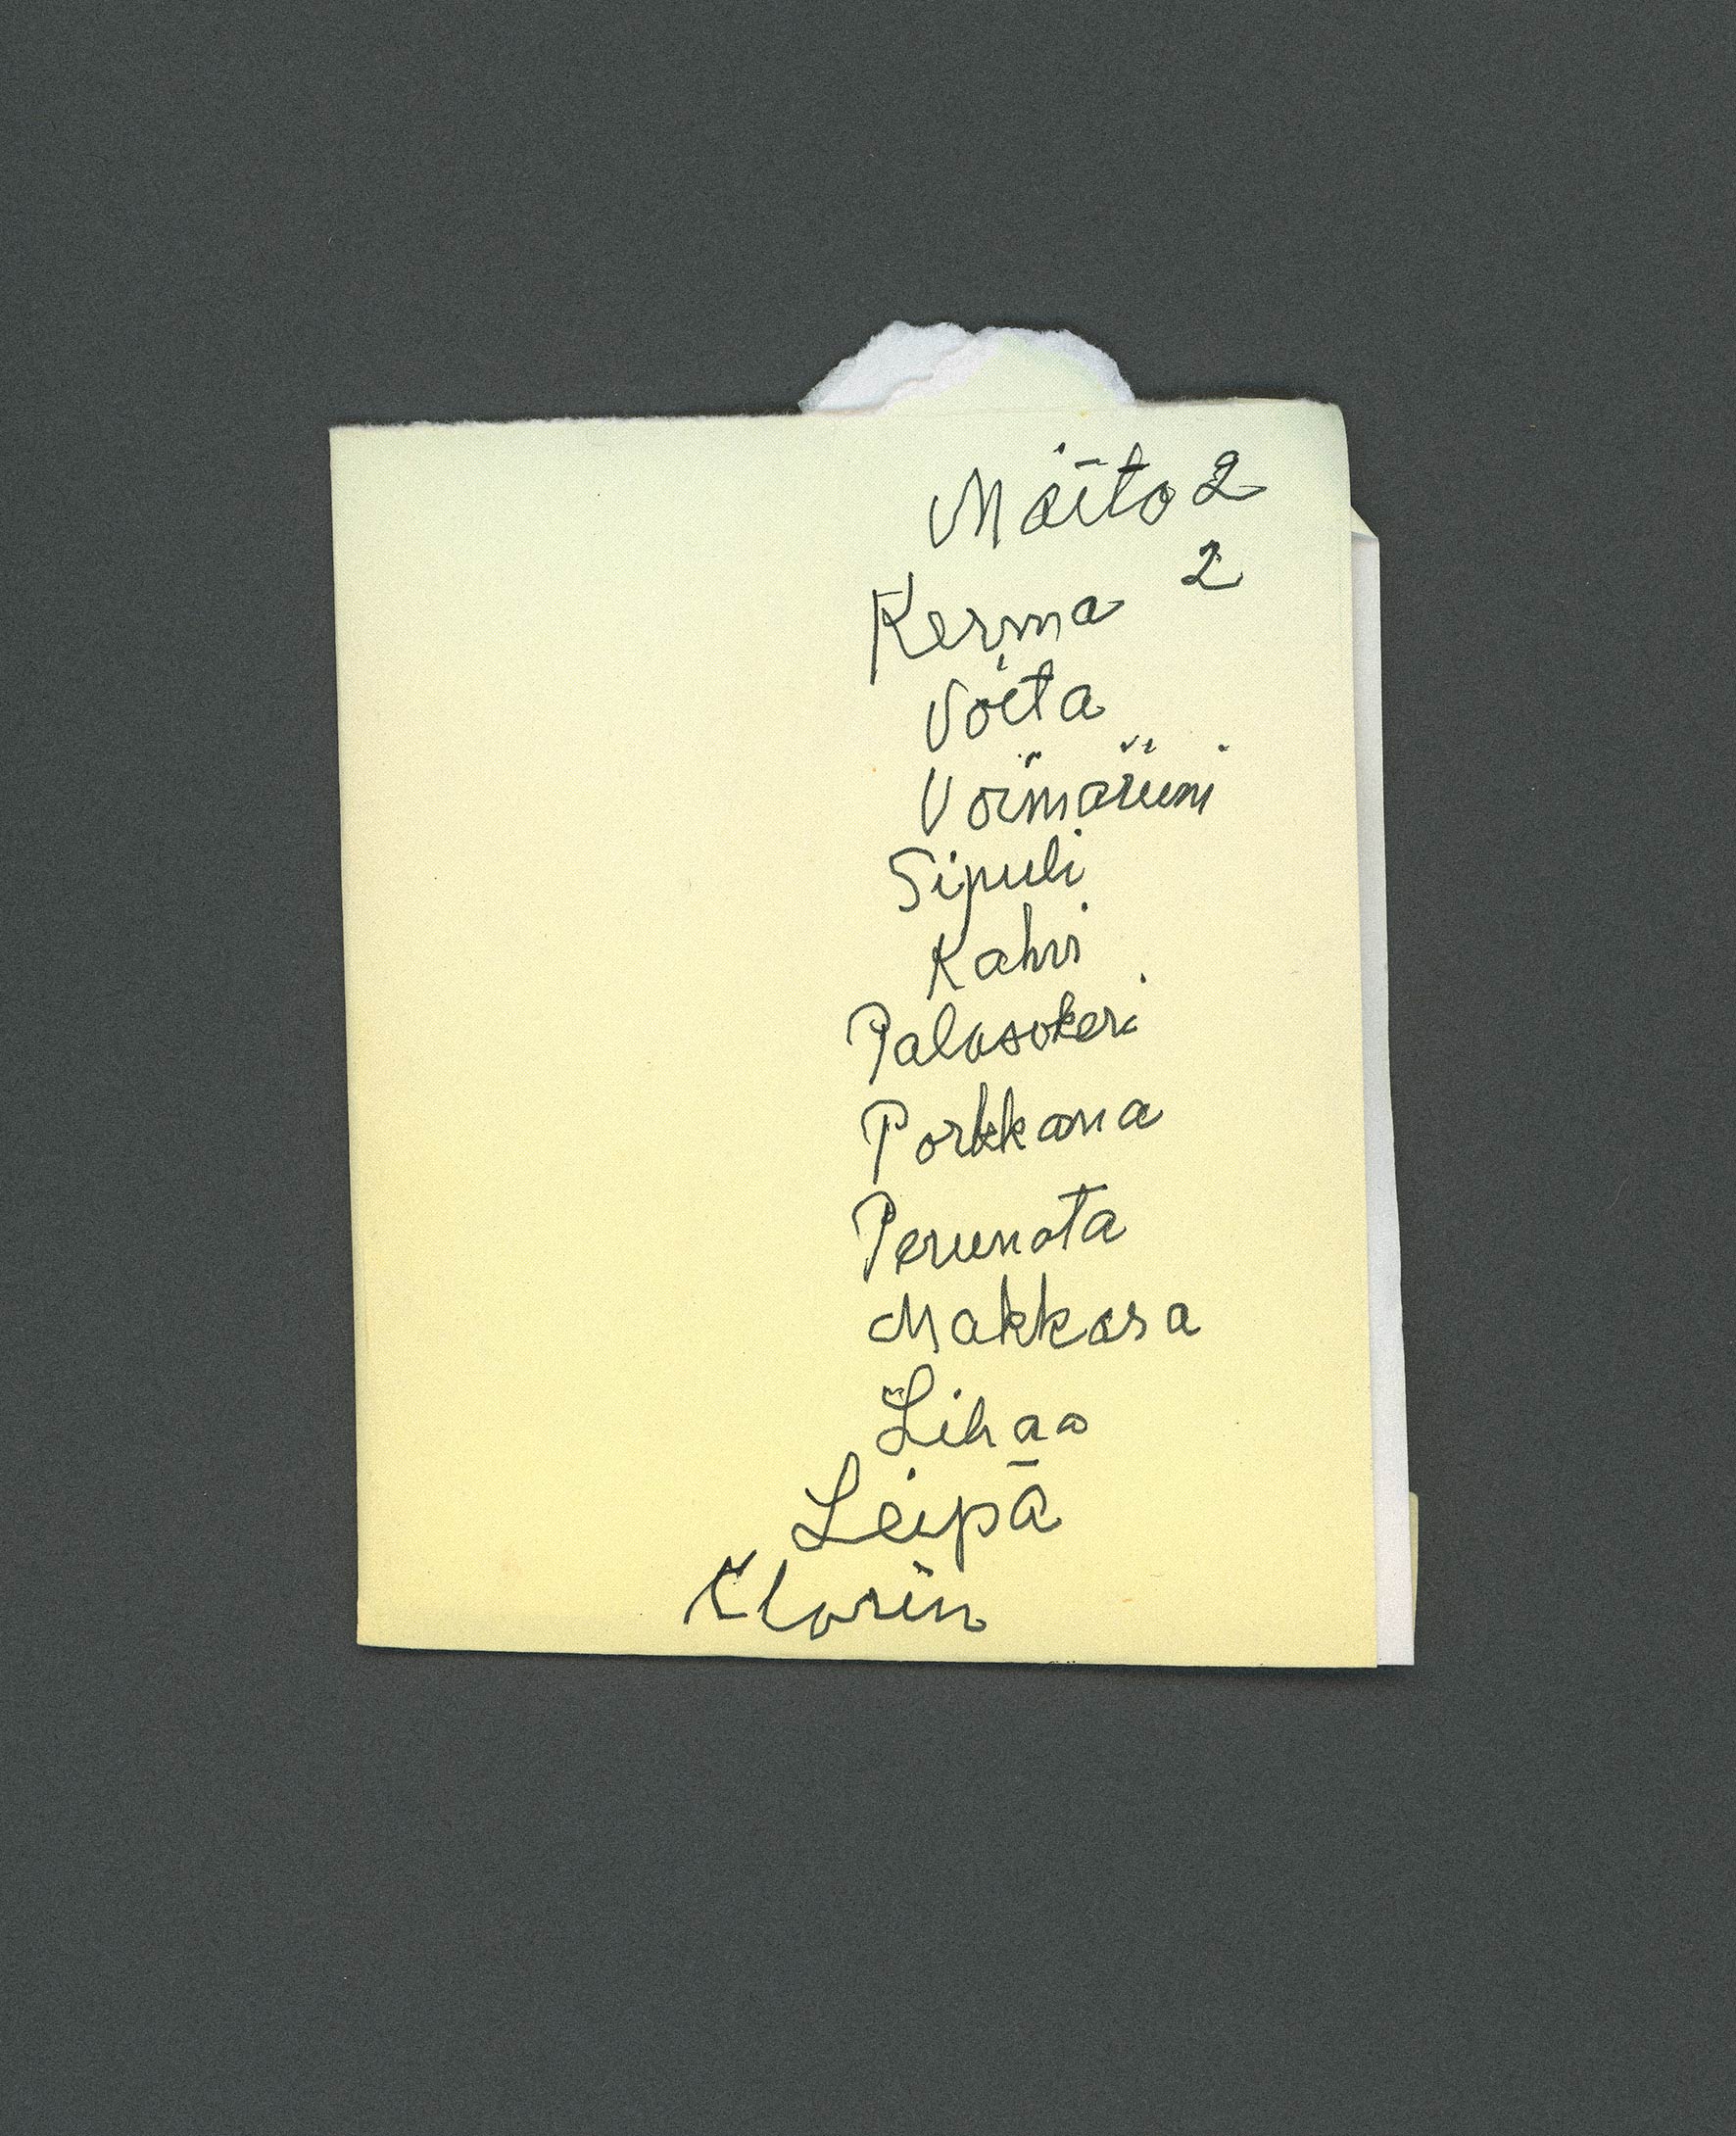 Maito 2
Kerma 2
Voita
Voimariini
Sipuli
Kahvi
Palasokeri
Porkkana
Perunata
Makkara
Lihaa
Leipä
Klorin